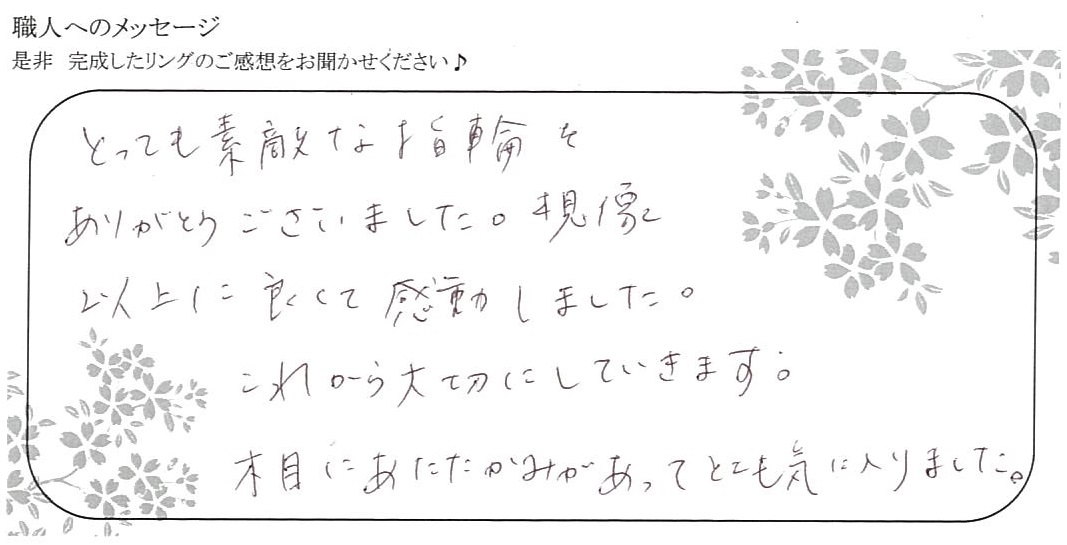 職人へのメッセージ
是非 完成したリングのご感想をお聞かせください♪
とっても素敵な指輪を
ありがとうございました。想像
以上に良くて感動しました。
これから大切にしていきます。
木目にあたたかみがあってとても気に入りました。